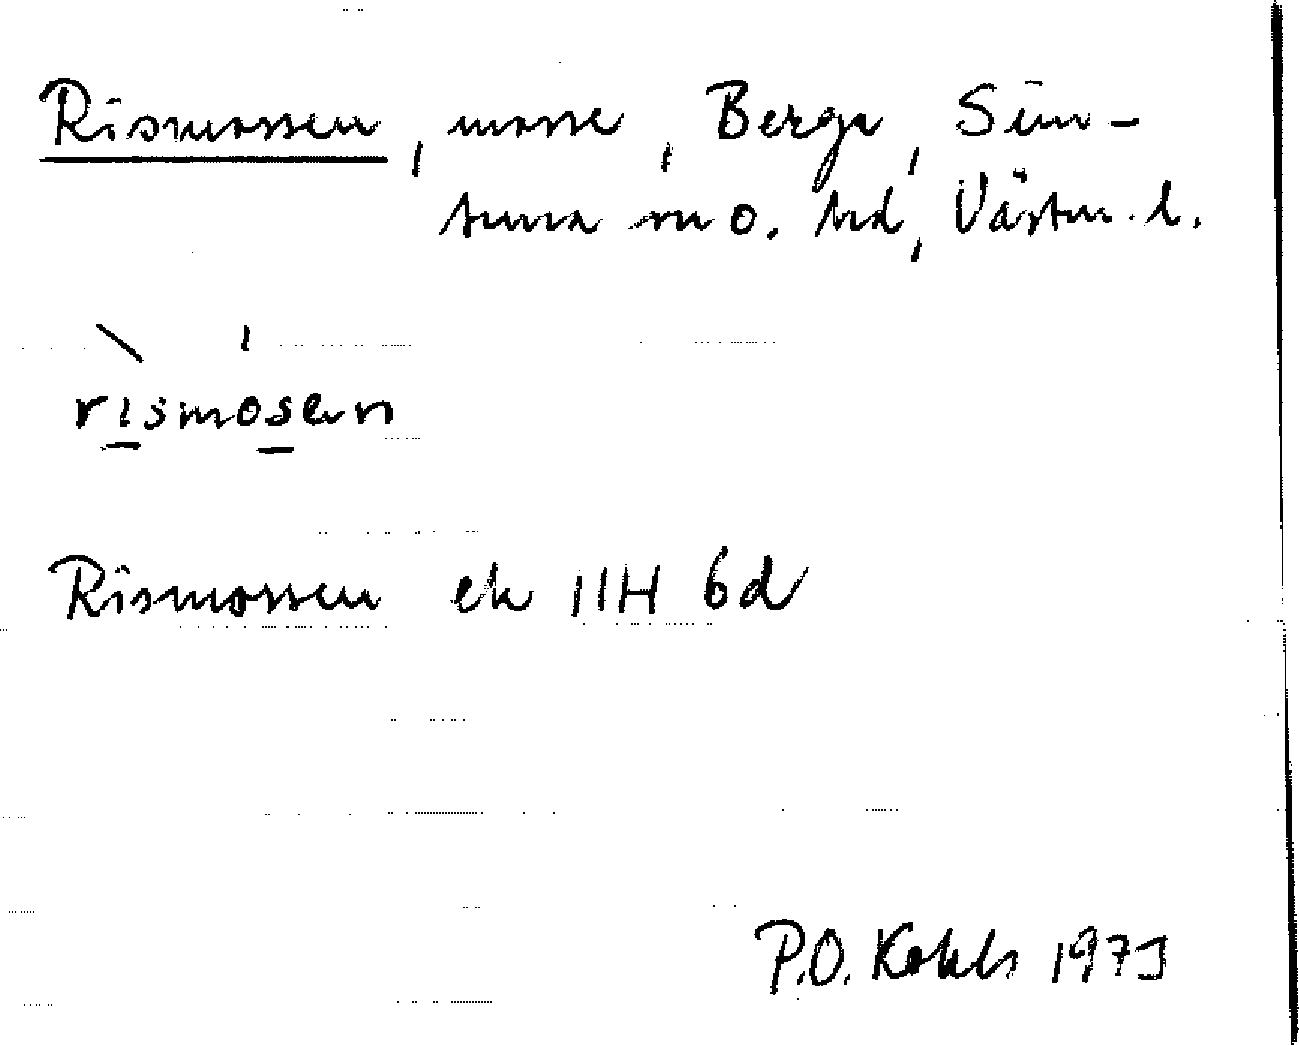 Rismossen, mosse, Berga, Sim-
tuna sn o. hd, Västm. l.
rismosen
Rismossen ek 11H 6d
P.O. 1975